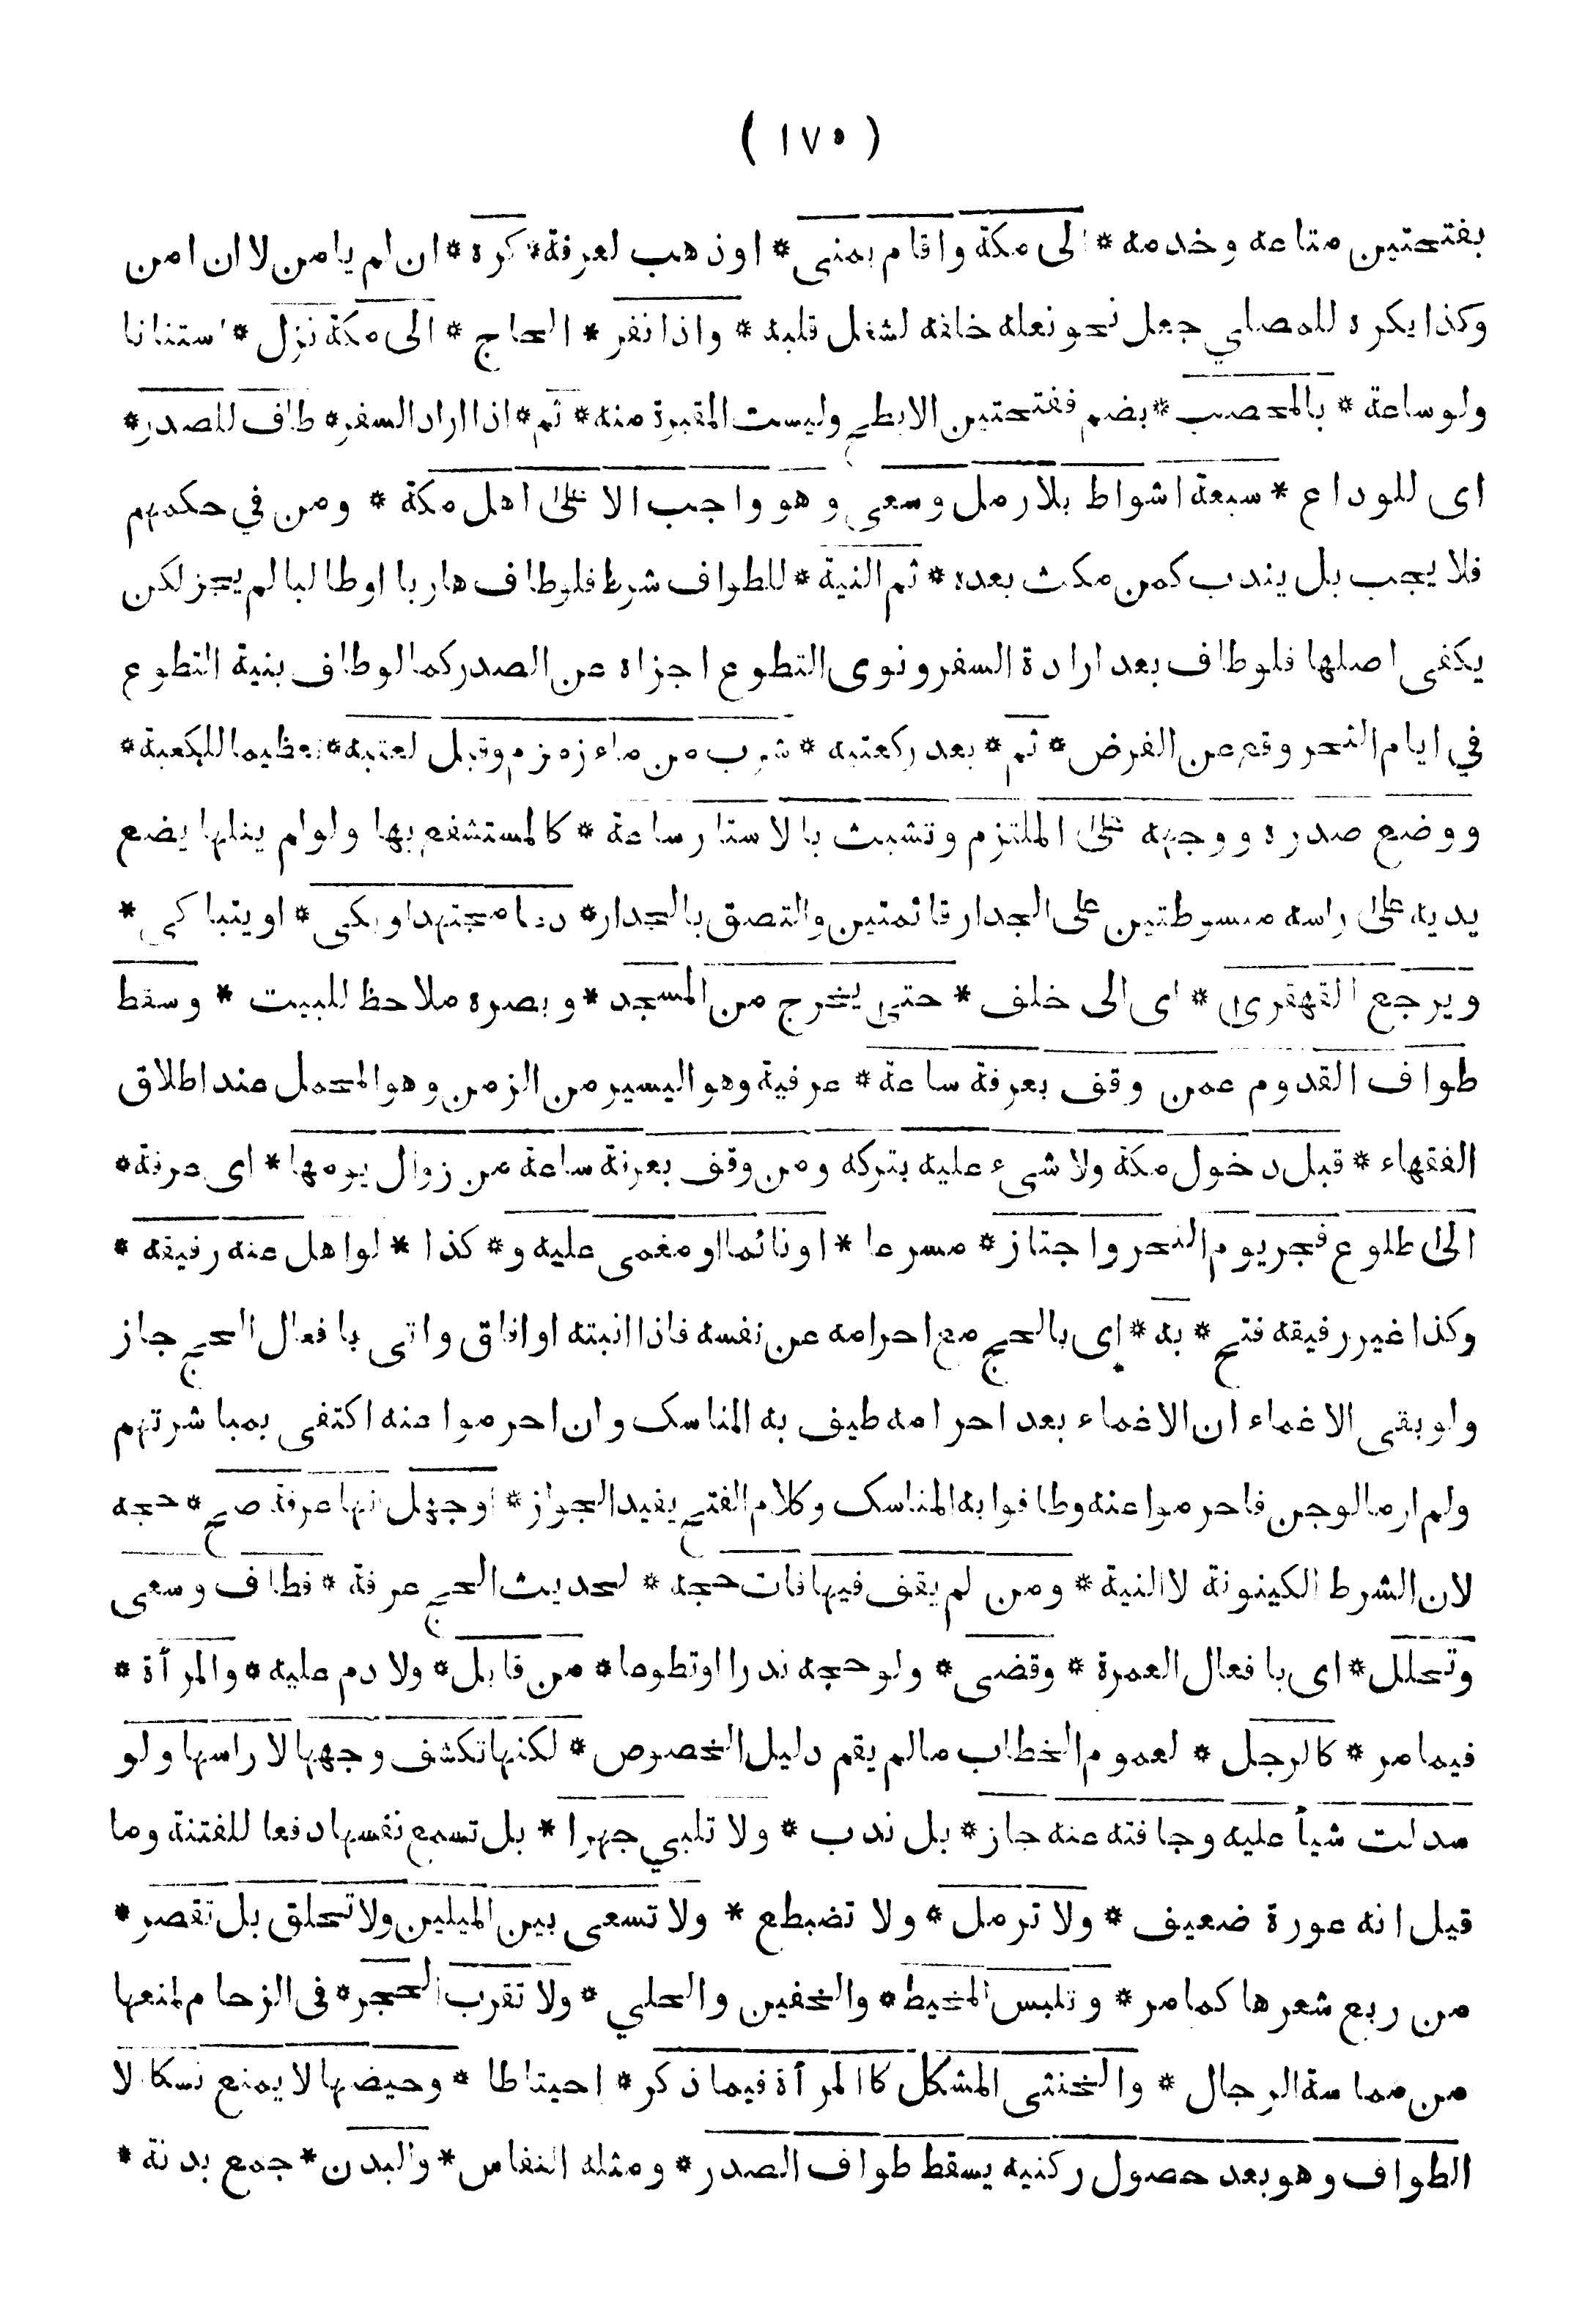 ( ١٧٥ )
بفتحتين متاعه وخدمه * الى مكة واقام بمنى * اوذهب لعرفة * كره * ان لم يامن لا ان امن
وكذا يكره للمصلي جعل نحو نعله خلفه لشغل قلبه * واذا نفر * الحاج * الى مكة نزل * استنانا
ولو ساعة * بالمحصب * بضم ففتحتين الابطح وليست المقبرة منه * ثم * اذا اراد السفر * طاف للصدر *
اى للوداع * سبعة اشواط بلا رمل وسعى وهو واجب الا على اهل مكة * ومن في حكمهم
فلا يجب بل يندب كمن مكث بعده * ثم النية * للطواف شرط فلو طاف هاربا او طالبا لم يجز لكن
يكفى اصلها فلو طاف بعد ارادة السفر ونوى التطوع اجزاه عن الصدر كما لو طاف بنية التطوع
في ايام النحر وقع عن الفرض * ثم * بعد ركعتيه * شرب من ماء زمزم وقبل لعتبه * تعظيما للكعبة *
ووضع صدره ووجهه على الملتزم وتشبث بالاستار ساعة * كالمستشفع بها ولو لم ينلها يضع
يديه على راسه مبسوطتين على الجدار قائمتين والتصق بالجدار * دعا مجتهدا وبكى * او يتباكى *
ويرجع القهقرى * اى الى خلف * حتى يخرج من المسجد * وبصره ملاحظ للبيت * وسقط
طواف القدوم عمن وقف بعرفة ساعة * عرفية وهو اليسير من الزمن وهو المحمل عند اطلاق
الفقهاء * قبل دخول مكة ولا شىء عليه بتركه ومن وقف بعرفة ساعة من زوال يومها * اى عرفة *
الى طلوع فجر يوم النحر واجتاز * مسرعا * او نائما او مغمى عليه و * كذا * لو اهل عنه رفيقه *
وكذا غير رفيقه فتح * به * اى بالحج مع احرامه عن نفسه فاذا انبته او افاق واتى بافعال الحج جاز
ولو بقى الاغماء ان الاغماء بعد احرامه طيف به المناسك وان احرموا عنه اكتفى بمباشرتهم
ولم ار ما لو جن فاحرموا عنه وطافوا به المناسك وكلام الفتح يفيد الجواز * او جهل انها عرفة صح * حجه
لان الشرط الكينونة لا النية * ومن لم يقف فيها فات حجه * لحديث الحج عرفة * فطاف وسعى
وتحلل * اى بافعال العمرة * وقضى * ولو حجه نذرا او تطوعا * من قابل * ولا دم عليه * والمرأة *
فيما مر * كالرجل * لعموم الخطاب ما لم يقم دليل الخصوص * لكنها تكشف وجهها لا راسها ولو
سدلت شيأ عليه وجافته عنه جاز * بل ندب * ولا تلبي جهرا * بل تسمع نفسها دفعا للفتنة وما
قيل انه عورة ضعيف * ولا ترمل * ولا تضبطع * ولا تسعى بين الميلين ولا تحلق بل تقصر *
من ربع شعرها كما مر * وتلبس المخيط * والخفين والحلي * ولا تقرب الحجر * فى الزحام لمنعها
من مماسة الرجال * والخنثى المشكل كالمرأة فيما ذكر * احتياطا * وحيضها لا يمنع نسكا الا
الطواف وهو بعد حصول ركنيه يسقط طواف الصدر * ومثله النفاس * والبدن * جمع بدنة *